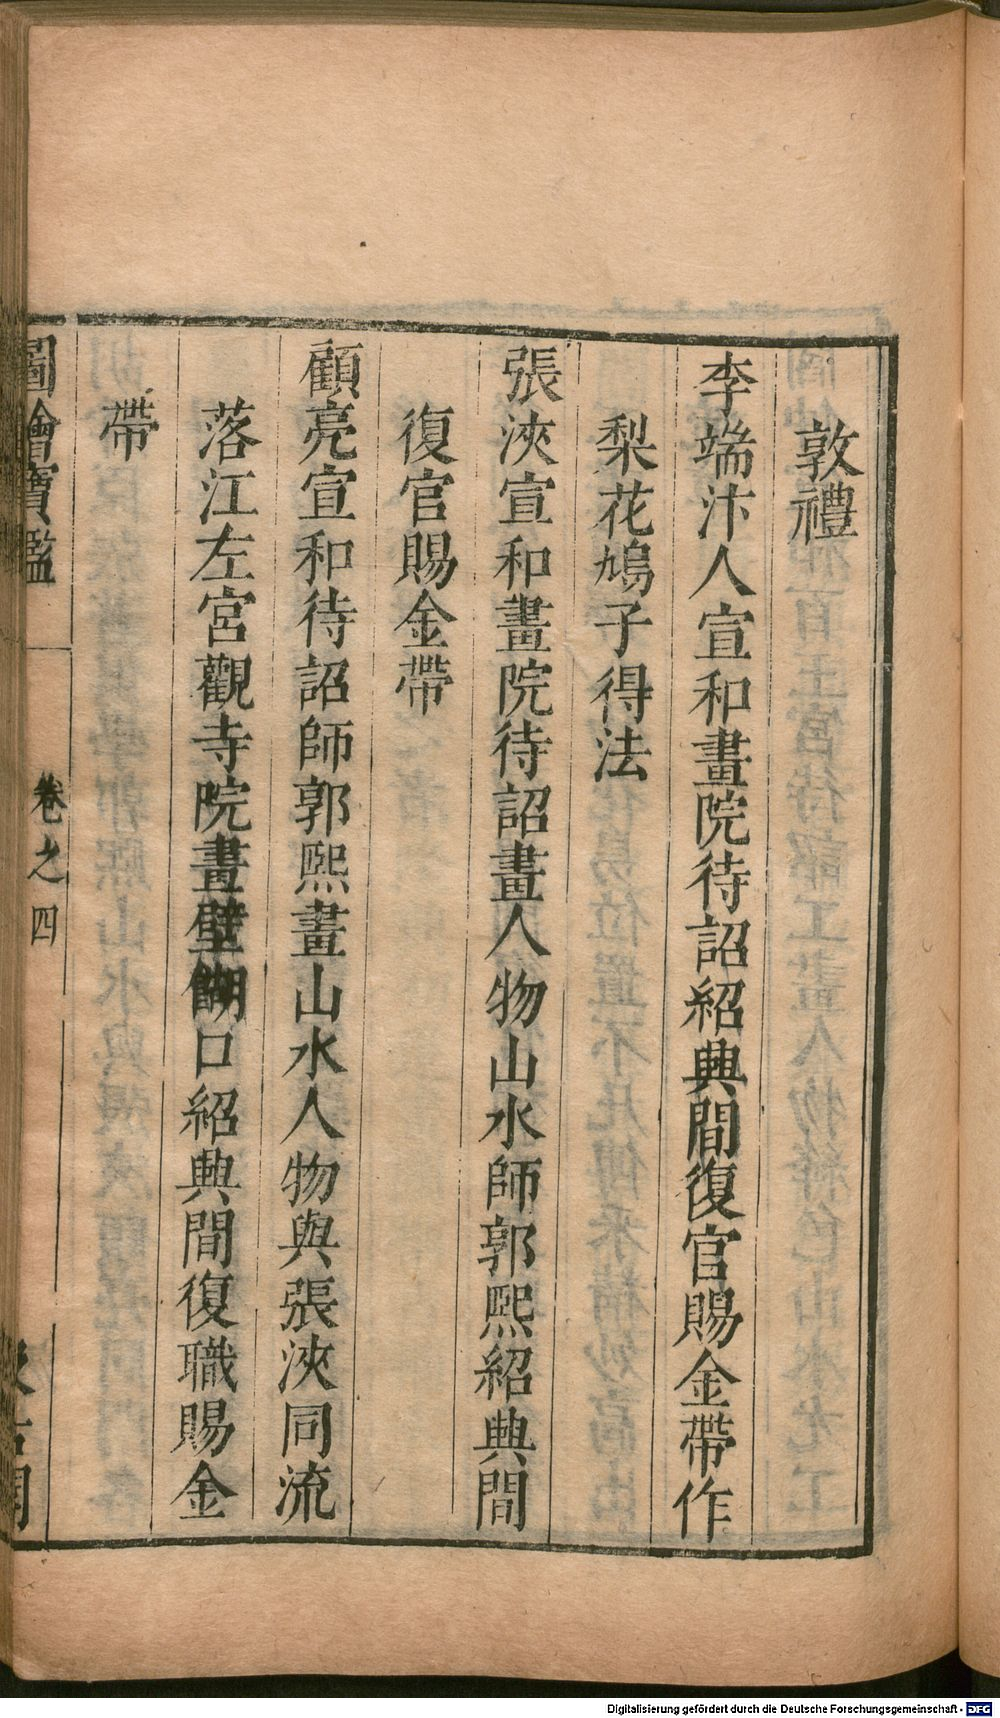 敦禮
李端汴人宣和畫院待詔紹興間復官賜金帶作
梨花鳩子得法
張浹宣和畫院待詔畫人物山水師郭熙紹興間
復官賜金帶
顧亮宣和待詔師郭熙畫山水人物與張浹同流
落江左宮觀寺院畫壁餬口紹興間復職賜金
帶
圖繪寶鑑
卷之四
Digitalisierung gefördert durch die Deutsche Forschungsgemeinschaft - DFG